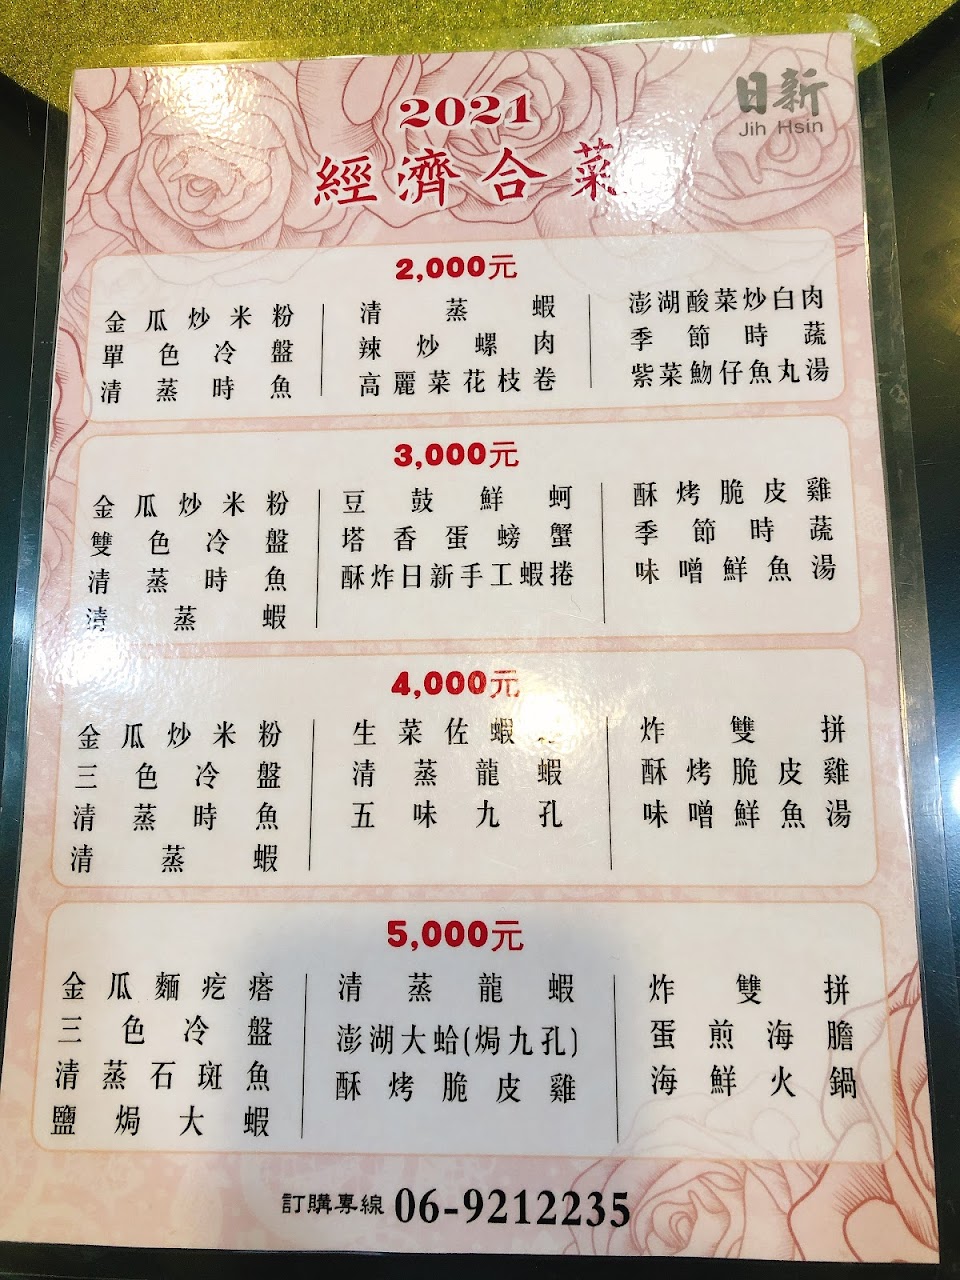 日新
Jih Hsin
2021
經濟合菜
2,000元
金瓜炒米粉
單色冷盤
清蒸時魚
清蒸蝦
辣炒螺肉
高麗菜花枝卷
澎湖酸菜炒白肉
季節時蔬
紫菜魩仔魚丸湯
3,000元
金瓜炒米粉
雙色冷盤
清蒸時魚
清蒸蝦
豆鼓鮮蚵
塔香蛋螃蟹
酥炸日新手工蝦捲
酥烤脆皮雞
季節時蔬
味噌鮮魚湯
4,000元
金瓜炒米粉
三色冷盤
清蒸時魚
清蒸蝦
生菜佐蝦
清蒸龍蝦
五味九孔
炸雙拼
酥烤脆皮雞
味噌鮮魚湯
5,000元
金瓜麵疙瘩
三色冷盤
清蒸石斑魚
鹽焗大蝦
清蒸龍蝦
澎湖大蛤(焗九孔)
酥烤脆皮雞
炸雙拼
蛋煎海膽
海鮮火鍋
訂購專線 06-9212235